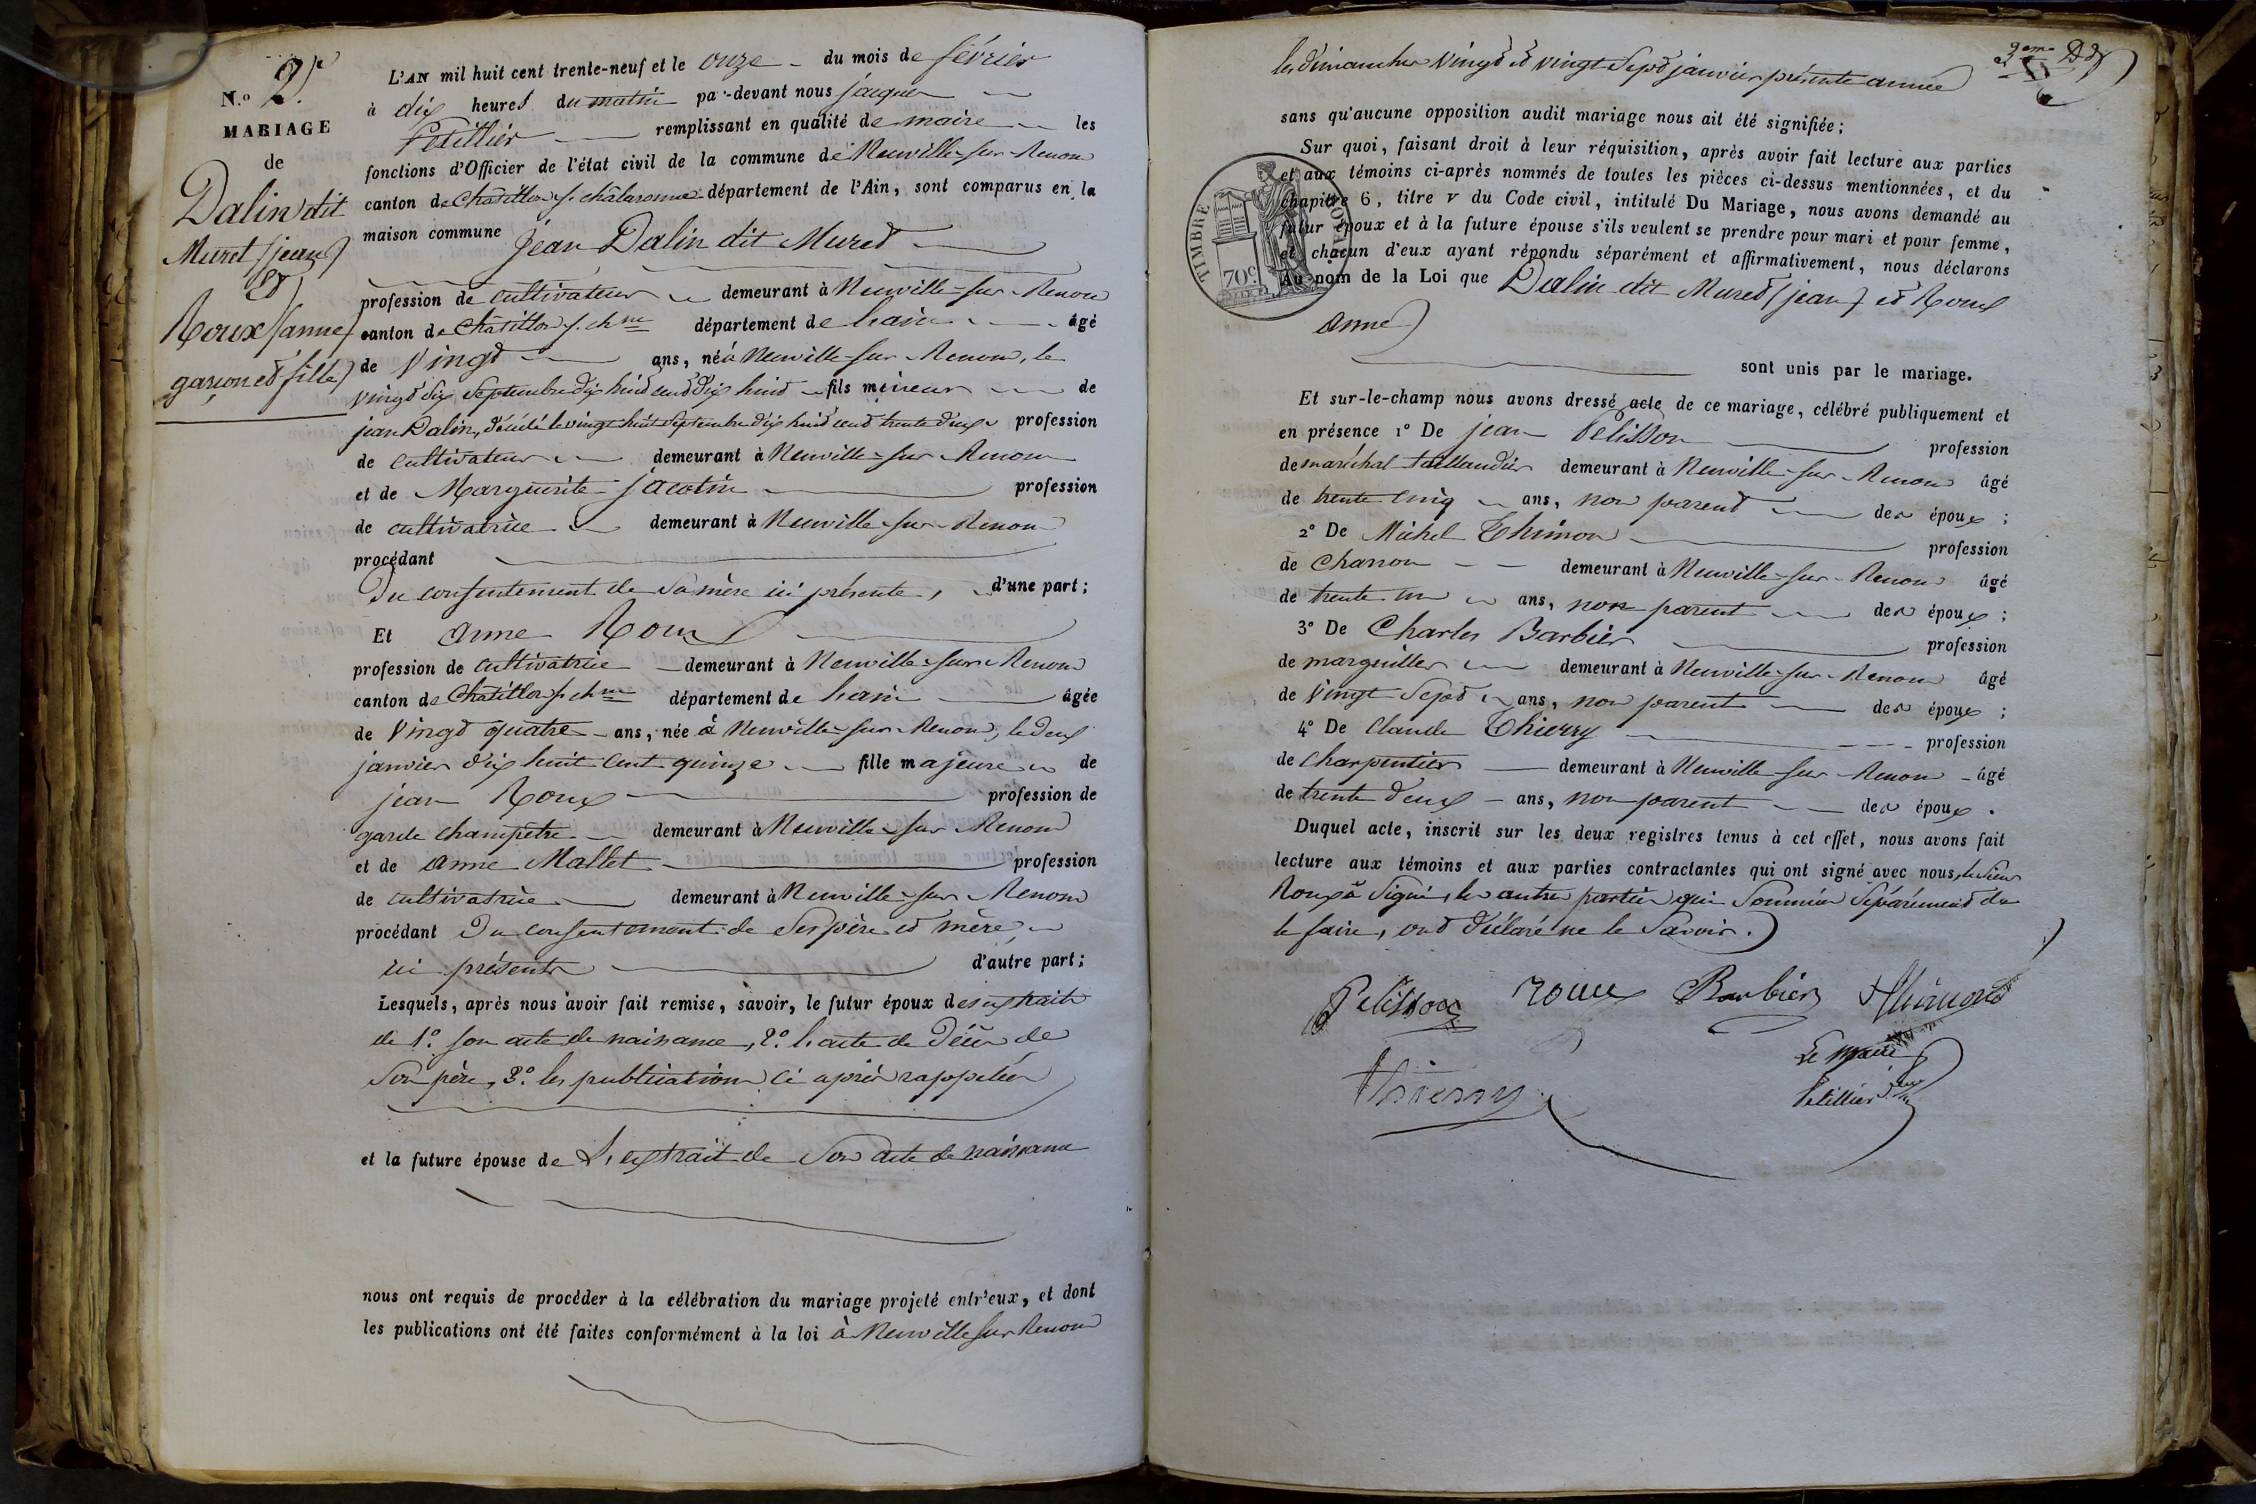 N.o 2.
MARIAGE
de
Dalin dit
Muret (jean)
Et
Roux (anne)
garçon et fille
L'AN mil huit cent trente-neuf et le onze du mois de février
à dix heures du matin par-devant nous jacques
Petillier remplissant en qualité de maire les
fonctions d'Officier de l'état civil de la commune de Neuville-sur-Renom
canton de Châtillon s. châlaronne département de l'Ain, sont comparus en la
maison commune jean Dalin dit Muret
profession de cultivateur demeurant à Neuville-sur-Renom
canton de Châtillon s. chne département de L'ain âgé
de Vingt ans, né à Neuville-sur-Renom, le
vingt six Septembre dix huit cent dix huit fils mineur de
jean Dalin, décédé le vingt huit Septembre dix huit cent trente deux profession
de cultivateur demeurant à Neuville-sur-Renom
et de Marguerite jacotin profession
de cultivatrice demeurant à Neuville-sur-Renom
procédant
Du consentement de sa mère ici présente, d'une part;
Et anne Roux
profession de cultivatrice demeurant à Neuville-sur-Renom
canton de Châtillon s. chne département de L'ain âgée
de Vingt quatre ans, née à Neuville-sur-Renom, le deux
janvier dix huit cent quinze fille majeure de
jean Roux profession de
garde champêtre demeurant à Neuville-sur-Renom
et de anne Mallet profession
de cultivatrice demeurant à Neuville-sur-Renom
procédant Du consentement de Ses père et mère
ici présents d'autre part;
Lesquels, après nous avoir fait remise, savoir, le futur époux des extraits
de 1.o son acte de naissance, 2.o L'acte de Décès de
Son père, 3.o les publications ci après rappelées
et la future épouse de L'extrait de Son acte de naissance
nous ont requis de procéder à la célébration du mariage projeté entr'eux, et dont
les publications ont été faites conformément à la loi à Neuville sur Renom
les dimanches Vingt et vingt Sept janvier présente année
sans qu'aucune opposition audit mariage nous ait été signifiée;
Sur quoi, faisant droit à leur réquisition, après avoir fait lecture aux parties
et aux témoins ci-après nommés de toutes les pièces ci-dessus mentionnées, et du
chapitre 6, titre v du Code civil, intitulé Du Mariage, nous avons demandé au
futur époux et à la future épouse s'ils veulent se prendre pour mari et pour femme,
et chacun d'eux ayant répondu séparément et affirmativement, nous déclarons
Au nom de la Loi que Dalin dit Muret (jean) et Roux
anne
sont unis par le mariage.
TIMBRE ROYAL
70c.
Et sur-le-champ nous avons dressé acte de ce mariage, célébré publiquement et
en présence 1° De jean Pelisson profession
de maréchal taillandier demeurant à Neuville-sur-Renom âgé
de trente cinq ans, non parent des époux;
2° De Michel Thimon profession
de Charron demeurant à Neuville-sur-Renom âgé
de trente un ans, non parent des époux;
3° De Charles Barbier profession
de marguiller demeurant à Neuville-sur-Renom âgé
de Vingt Sept ans, non parent des époux;
4° De Claude Thierry profession
de Charpentier demeurant à Neuville-sur-Renom âgé
de trente deux ans, non parent des époux.
Duquel acte, inscrit sur les deux registres tenus à cet effet, nous avons fait
lecture aux témoins et aux parties contractantes qui ont signé avec nous, le Sieur
Roux a Signé, les autres parties qui Sommées Séparément de
le faire, ont déclaré ne le Savoir.
Pelisson roux Barbier thimond
Le Maire
thierry Petillier